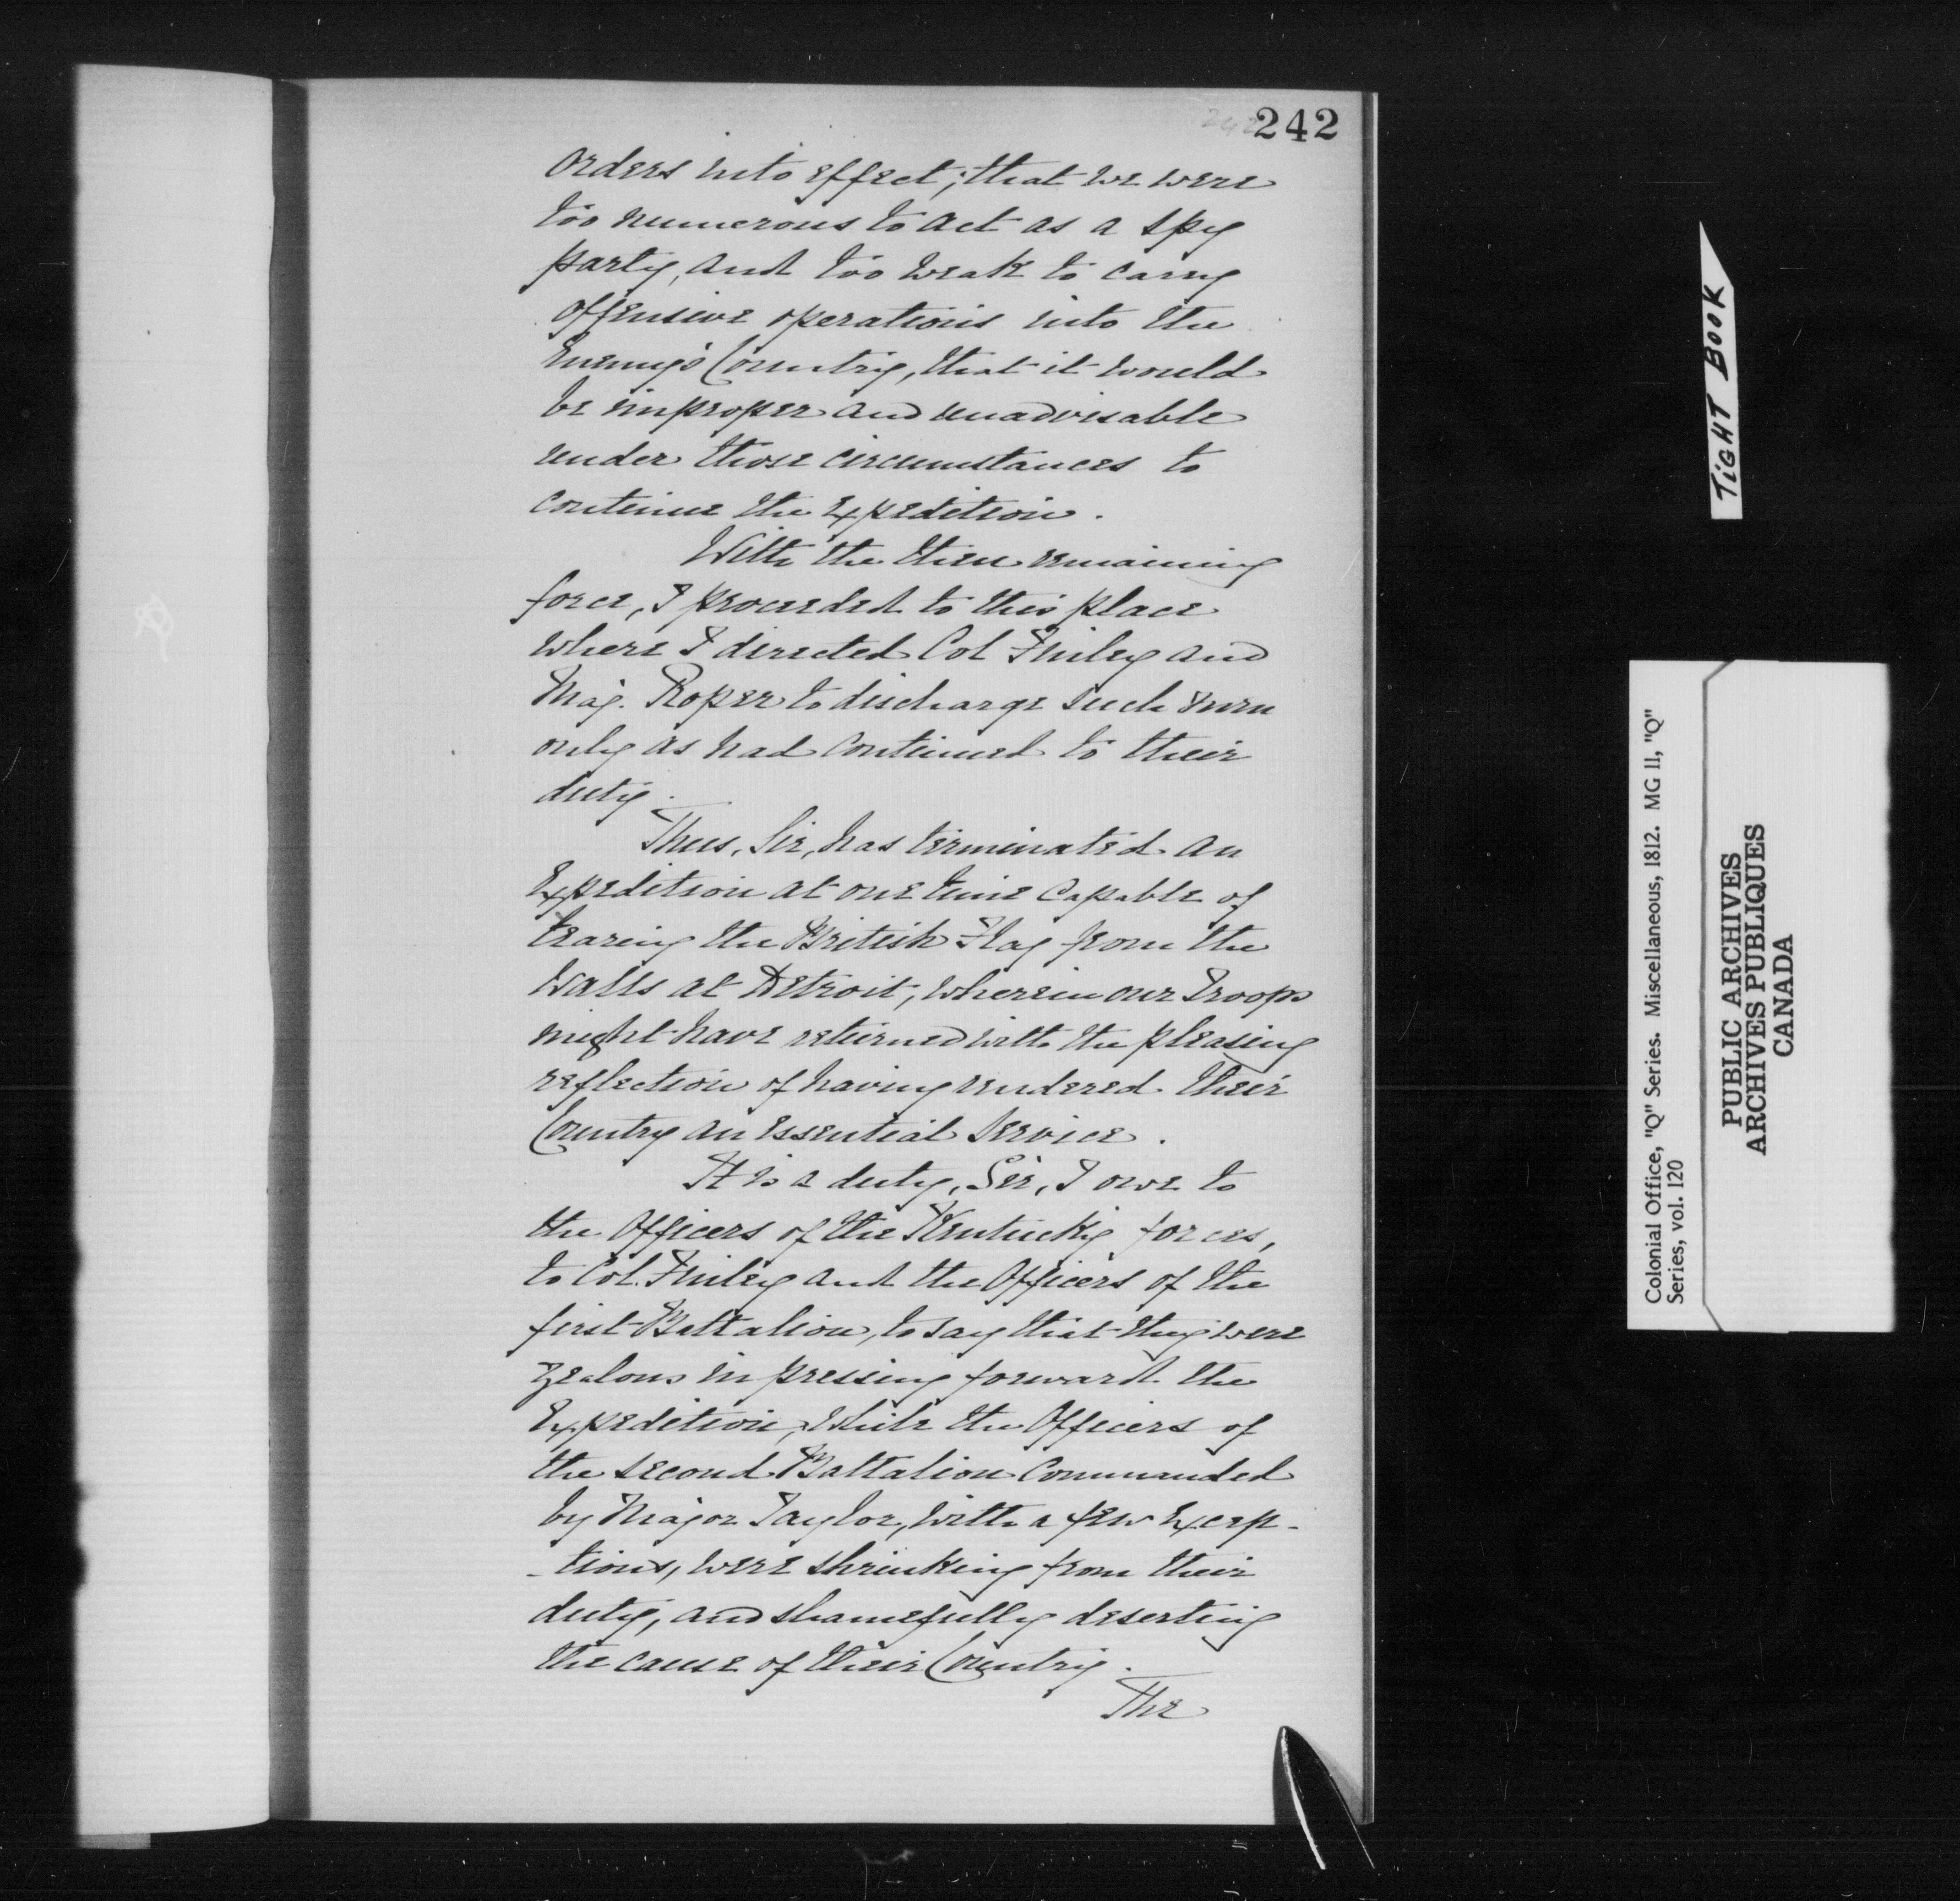 242
orders into effect; that we were
too numerous to act as a spy
party, and too weak to carry
offensive operations into the
Enemy's Country, that it would
be improper and unadvisable
under those circumstances to
continue the Expedition.
With the then remaining
force, I proceeded to this place
where I directed Col Finley and
Maj. Roper to discharge such men
only as had continued to their
duty.
Thus, Sir, has terminated an
Expedition at one time capable of
tearing the British Flag from the
Walls at Detroit, wherein our Troops
might have returned with the pleasing
reflection of having rendered their
Country an essential service.
It is a duty, Sir, I owe to
the Officers of the Kentucky forces,
to Col. Finley and the Officers of the
first Battalion, to say that they were
zealous in pressing forward the
Expedition, while the Officers of
the second Battalion Commanded
by Major Taylor, with a few Excep-
-tions, were shrinking from their
duty, and shamefully deserting
the cause of their Country.
The
TIGHT BOOK
Colonial Office, "Q" Series. Miscellaneous, 1812. MG 11, "Q"
Series, vol. 120
PUBLIC ARCHIVES
ARCHIVES PUBLIQUES
CANADA